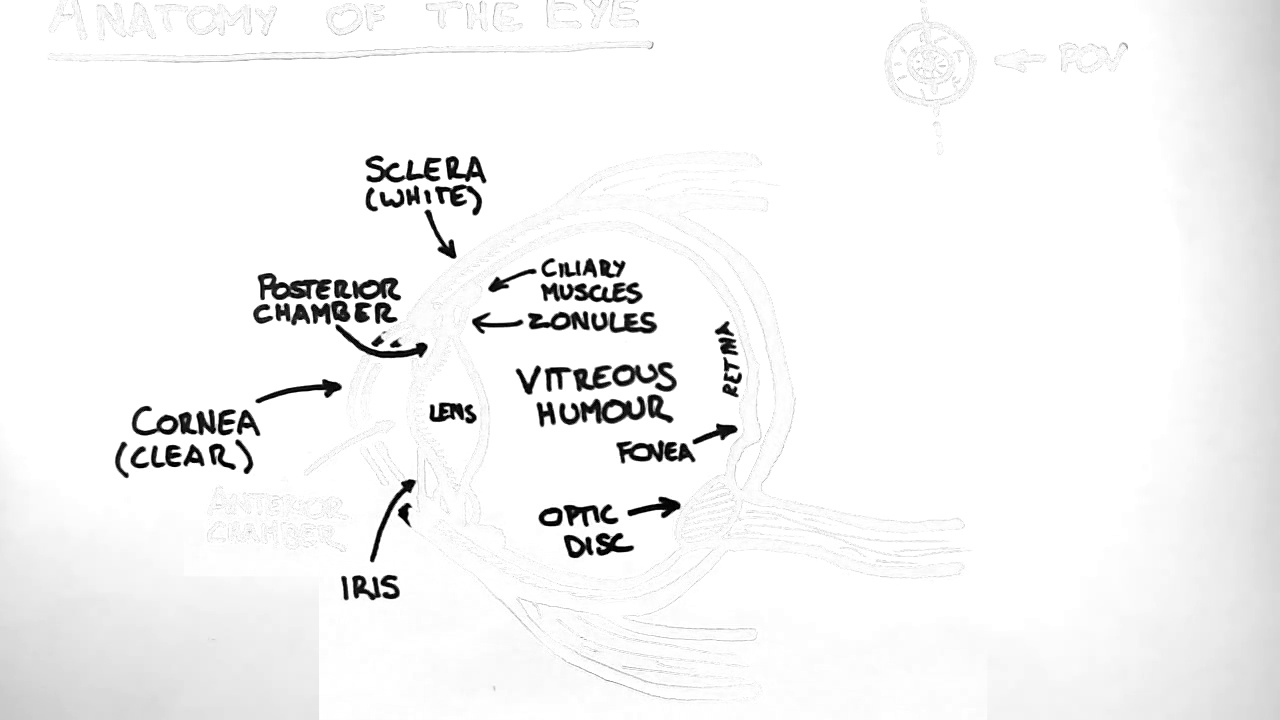 ANATOMY OF THE EYE
POV
SCLERA
(WHITE)
POSTERIOR
CHAMBER
CILIARY
MUSCLES
ZONULES
RETINA
VITREOUS
HUMOUR
LENS
CORNEA
(CLEAR)
FOVEA
ANTERIOR
CHAMBER
OPTIC
DISC
IRIS